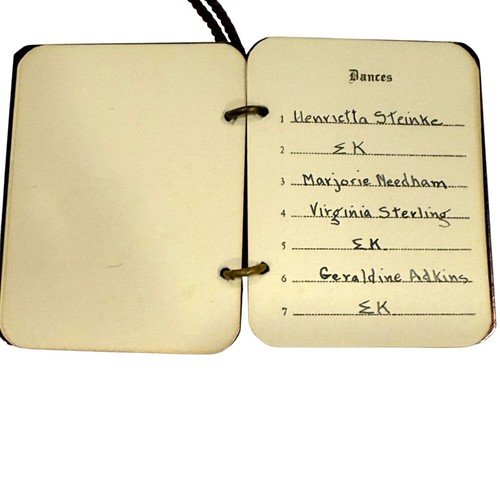 Dances
1 Henrietta Steinke
2 ΣK
3 Marjorie Needham
4 Virginia Sterling
5 ΣK
6 Geraldine Adkins
7 ΣK